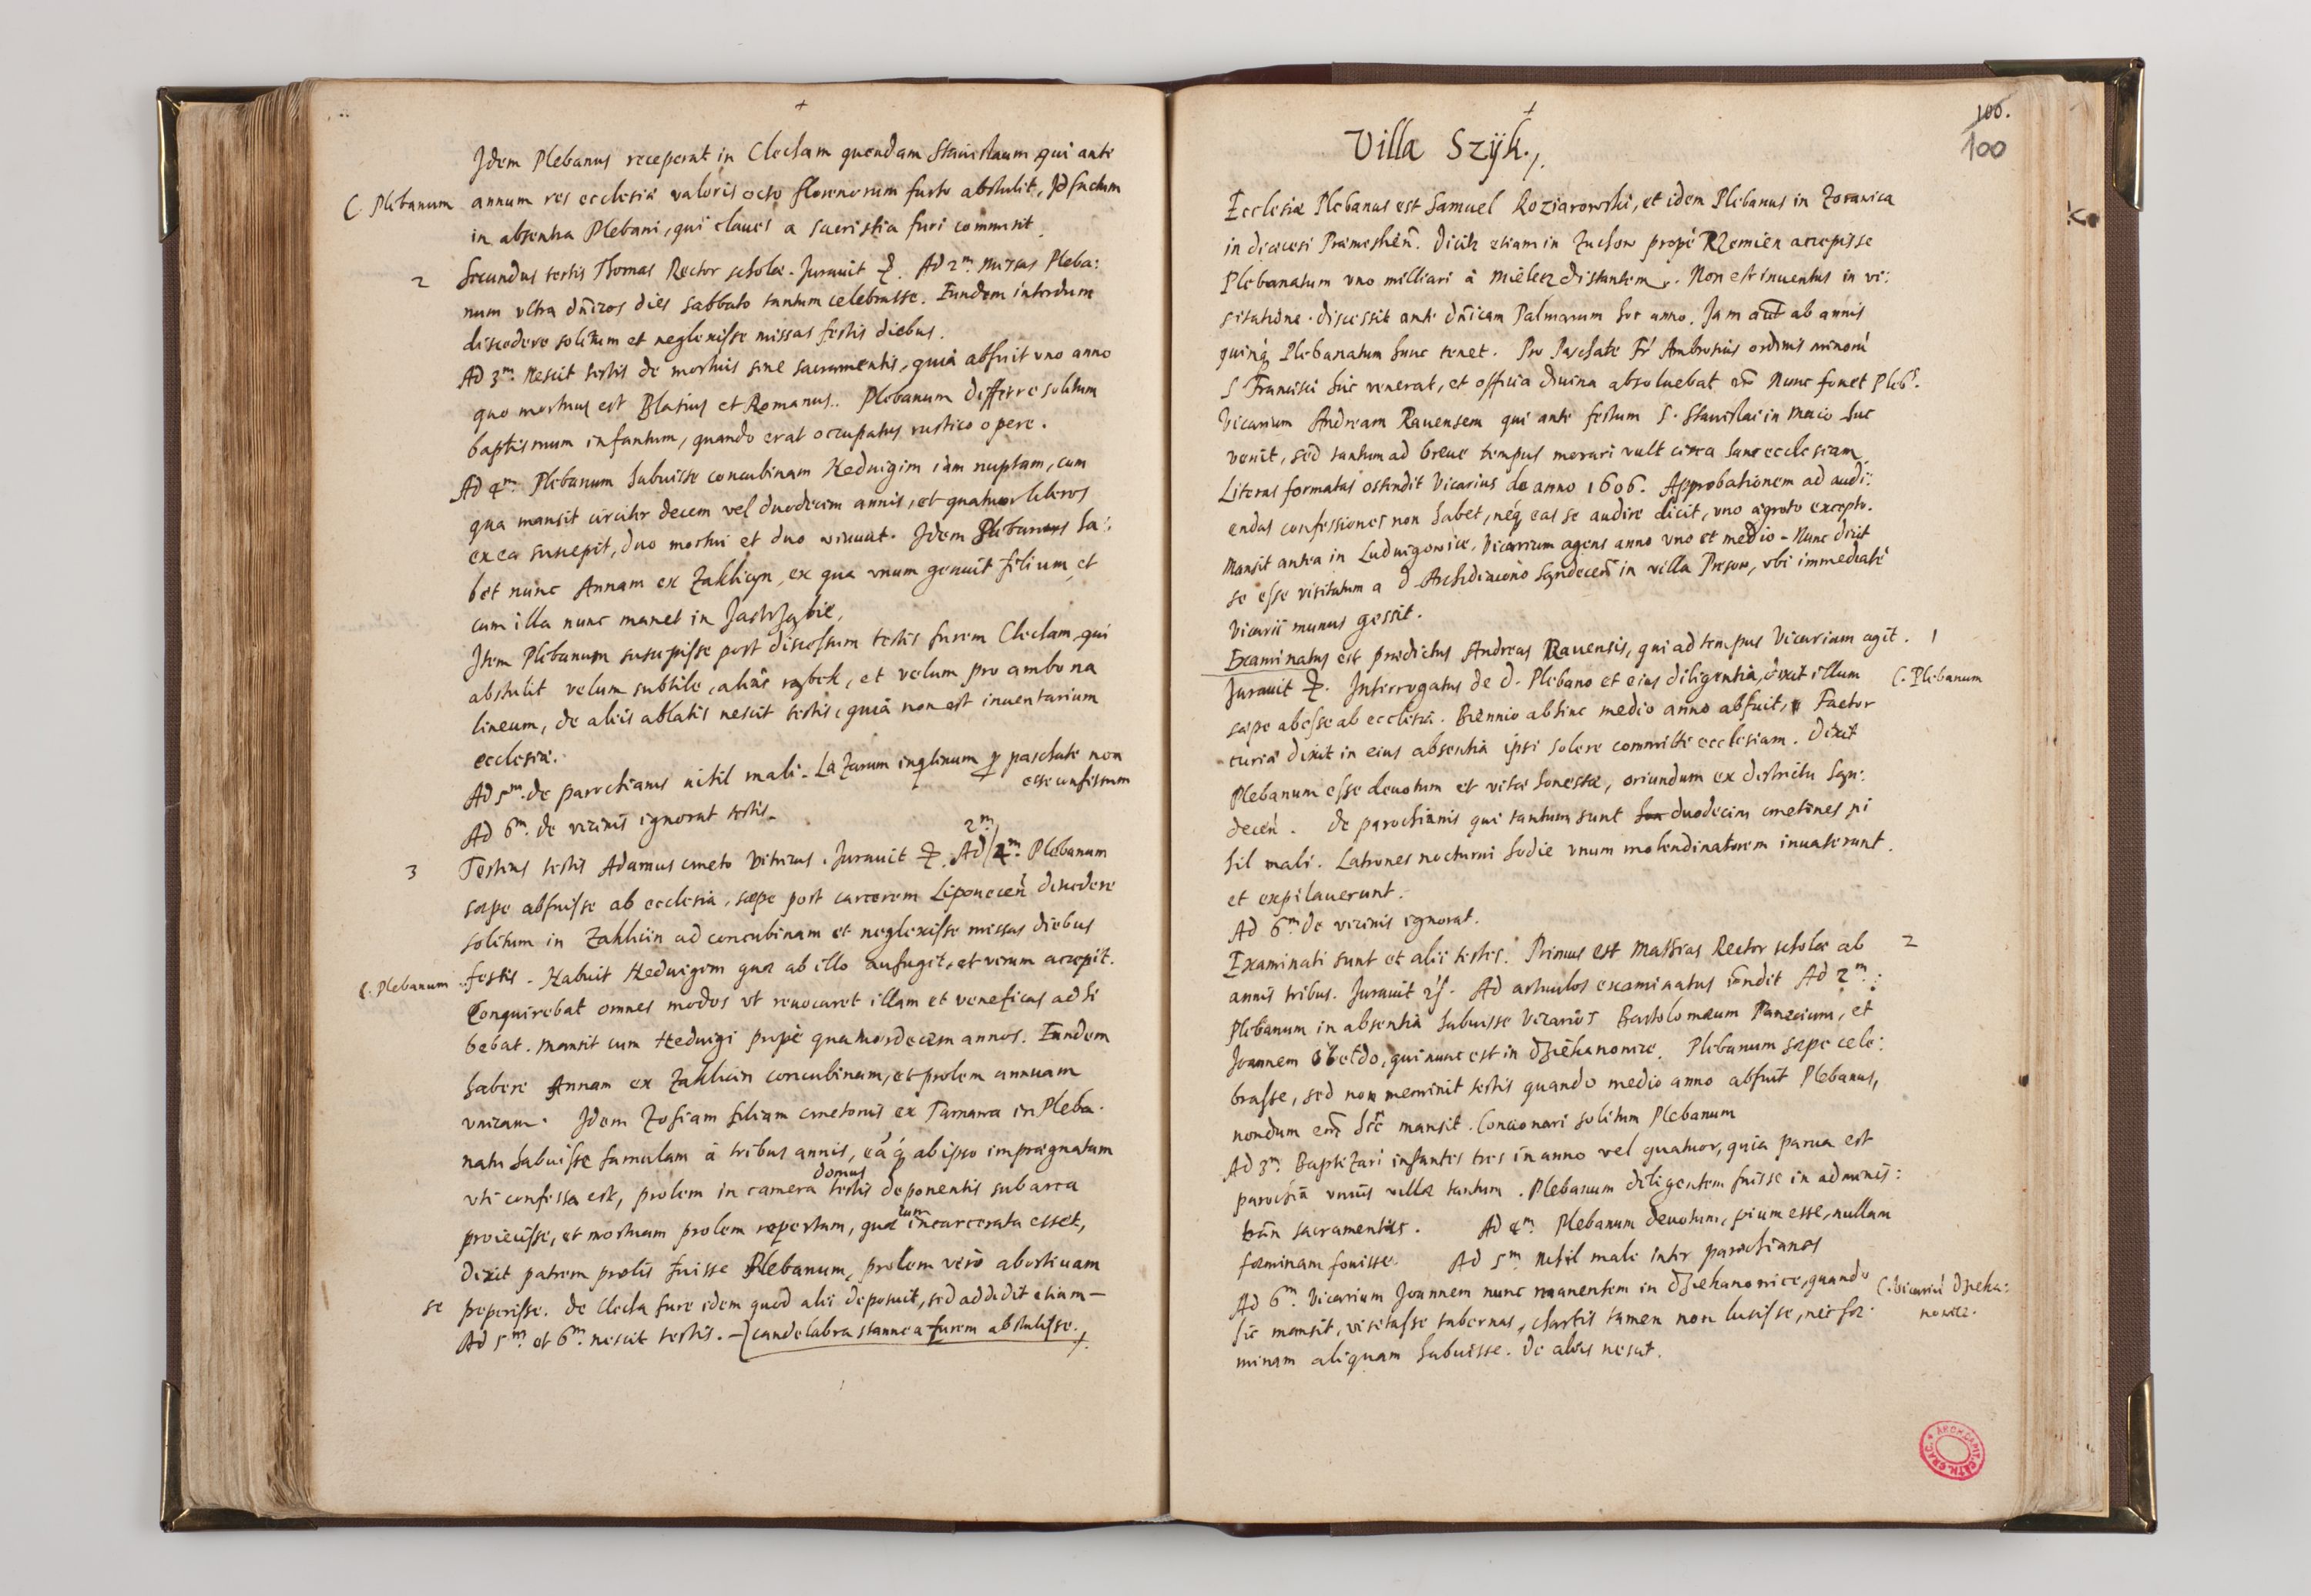 +
Idem Plebanus receperat in Clecham quendam Stanislaum qui ante
C. Plebanum
annum res ecclesiæ valoris octo florenorum furto abstulit, Id factum
in absentia Plebani, qui claues a sacristia furi commisit.
2
Secundus testis Thomas Rector scholæ. Iurauit &. Ad 2m. Missas Pleba:
num vltra dn̄icos dies sabbato tantum celebrasse. Eundem interdum
discedere solitum et neglexisse missas festis diebus.
Ad 3m. Nescit testis de mortuis sine sacramentis, quia abfuit vno anno
quo mortuus est Blasius et Romanus. Plebanum differre solitum
baptismum infantum, quando erat occupatus rustico opere.
Ad 4m. Plebanum habuisse concubinam Heduigim iam nuptam, cum
qua mansit circiter decem vel duodecim annis, et quatuor liberos
ex ea suscepit, duo mortui et duo viuunt. Idem Plebanus ha:
bet nunc Annam ex Zaklicyn, ex qua vnum genuit filium et
cum illa nunc manet in
Item Plebanum suscepisse post discessum testis furem Clecham, qui
abstulit velum subtile, aliās rąbek, et velum pro ambona
lineum, de aliis ablatis nescit testis, quia non est inuentarium
ecclesiæ.
Ad 5m. de parochianis nihil mali. Lazarum inquilinum p paschate non
esse confessum
Ad 6m. de vicinis ignorat testis.
3
Tertius testis Adamus cmeto Vitricus. Iurauit &. Ad 2m. 4m. Plebanum
sæpe abfuisse ab ecclesia, sæpe post carcerem Lipouecen̄ discedere
solitum in Zaklicin ad concubinam et neglexisse missas diebus
C. Plebanum
festis. Habuit Heduigem quæ ab illo aufugit, et virum accepit.
Conquirebat omnes modos vt reuocaret illam et veneficas adhi
bebat. Mansit cum Heduigi propè quatuordecim annos. Eundem
habere Annam ex Zaklicin concubinam, et prolem annuam
vnicam. Idem Zofiam filiam cmetonis ex Tarnawa in Pleba:
natu habuisse famulam à tribus annis, eāq́ ab ipso imprægnatam
vti confessa est, prolem in camera domus testis deponentis sub arca
proiecisse, et mortuam prolem repertam, quæ cum incarcerata esset,
dixit patrem prolis fuisse Plebanum, prolem verò abortiuam
se
peperisse. De Clecha fure idem quod alii deposuit, sed addidit etiam —
Ad 5m. et 6m. nescit testis. — candelabra stannea furem abstulisse.
+
100.
100
Villa Szÿk.
Ecclesiæ Plebanus est Samuel Koziarowski, et idem Plebanus in Zoranica
in diœcesi Præmislien̄. Dicitr etiam in Zuchow propè Rzemien accepisse
Plebanatum vno milliari à Mielecz distantem. Non est inuentus in vi:
sitatione. discessit ante dn̄icam Palmarum hoc anno. Iam aūt ab annis
quinq́ Plebanatum hunc tenet. Pro Paschate Fr Ambrosius ordinis minorū
S Francisci huc venerat, et officia diuina absoluebat Nunc fouet Plebs.
Vicarium Andream Rauensem qui ante festum S. Stanislai in Maio huc
venit, sed tantum ad breue tempus morari vult circa hanc ecclesiam
Literas formatas ostendit Vicarius de anno 1606. Approbationem ad audi:
endas confessiones non habet, neq́ eas se audire dicit, vno ægroto excepto.
Mansit antea in Ludwigowice, Vicarium agens anno vno et medio. Nunc dicit
se esse visitatum a D Archidiacono Sandecen̄ in villa Preson, vbi immediatè
Vicarii munus gessit.
Examinatus est prædictus Andreas Rauensis, qui ad tempus Vicarium agit. 1
Iurauit &. Interrogatus de D. Plebano et eius diligentia, dixit illum
C. Plebanum
sæpe abesse ab ecclesia. Biennio abhinc medio anno abfuit, Factor
curiæ dixit in eius absentia ipsi solere committi ecclesiam. Dixit
Plebanum esse deuotum et vitæ honestæ, oriundum ex districtu San:
decen̄. De parochianis qui tantum sunt duodecim cmetones ni
hil mali. Latrones nocturni hodie vnum molendinatorem inuaserunt
et expilauerunt.
Ad 6m de vicinis ignorat.
Examinati sunt et alii testes. Primus est Mathias Rector scholæ ab
2
annis tribus. Iurauit Ad articulos examinatus Ad 2m:
Plebanum in absentia habuisse Vicarios Bartolomæum Panecium, et
Ioannem qui nunc est in Dziekanowice. Plebanum sæpe cele:
brasse, sed non meminit testis quando medio anno abfuit Plebanus,
nondum eñi hīc mansit. Concionari solitum Plebanum
Ad 3m. Baptizari infantes tres in anno vel quatuor, quia parua est
parochia vnius villæ tantum. Plebanum diligentem fuisse in adminis:
tran̄ sacramentis. Ad 4m. Plebanum deuotum, pium esse, nullam
fœminam fouisse. Ad 5m Nihil mali inter parochianos
Ad 6m. Vicarium Ioannem nunc manentem in Dziekanowice, quando
C. Vicariū Dzieka:
nowice.
hic mansit, visitasse tabernas, chartis tamen non lusisse, nec fœ:
minam aliquam habuisse. De aliis nescit.